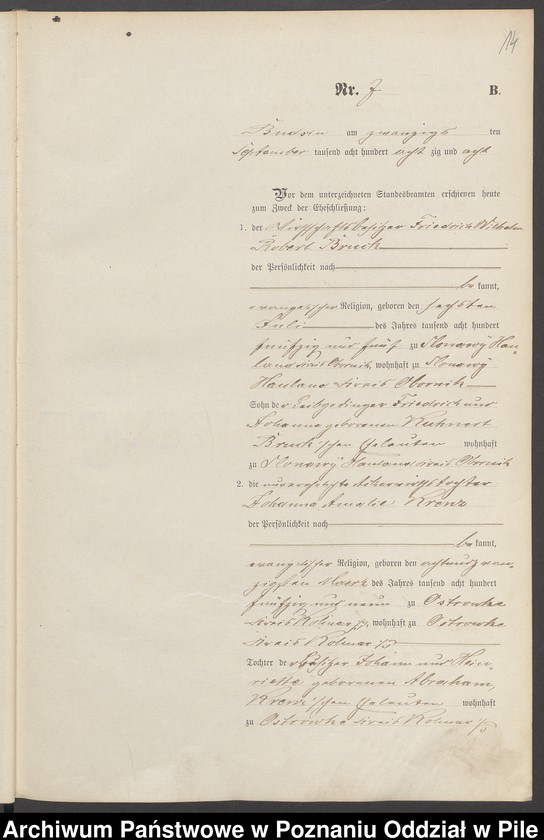 14
Nr. 7 B.
Budsin am zwanzigs ten
September tausend acht hundert acht zig und acht
Vor dem unterzeichneten Standesbeamten erschienen heute
zum Zweck der Eheschließung:
1. der Wirthschaftsbesitzer Friedrich Wilhelm
Robert Bruck
der Persönlichkeit nach
be kannt,
evangelischer Religion, geboren den sechsten
Juli des Jahres tausend acht hundert
fünfzig und fünf zu Slonawy Hau-
land Kreis Obornik, wohnhaft zu Slonawy
Hauland Kreis Obornik
Sohn der Leibgedinger Friedrich und
Johanna geborenen Kuhnert
Bruck'schen Eheleuten wohnhaft
zu Slonawy Hauland Kreis Obornik
2. die unverehelichte Ackerwirthstochter
Johanna Amalie Krenz
der Persönlichkeit nach
be kannt,
evangelischer Religion, geboren den achtundzwan-
zigsten Maerz des Jahres tausend acht hundert
fünfzig und neun zu Ostrowke
Kreis Kolmar i/P, wohnhaft zu Ostrowke
Kreis Kolmar i/P
Tochter der Besitzer Johann und Hein-
riette geborenen Abraham,
Krenz'schen Eheleuten wohnhaft
zu Ostrowke Kreis Kolmar i/P
Archiwum Państwowe w Poznaniu Oddział w Pile